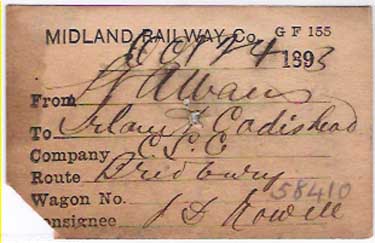 MIDLAND RAILWAY Co. G F 155
Oct 24 1893
From St Albans
To Irlam & Cadishead
Company C.L.C
Route Bredbury
Wagon No. 58410
onsignee J D Rowell